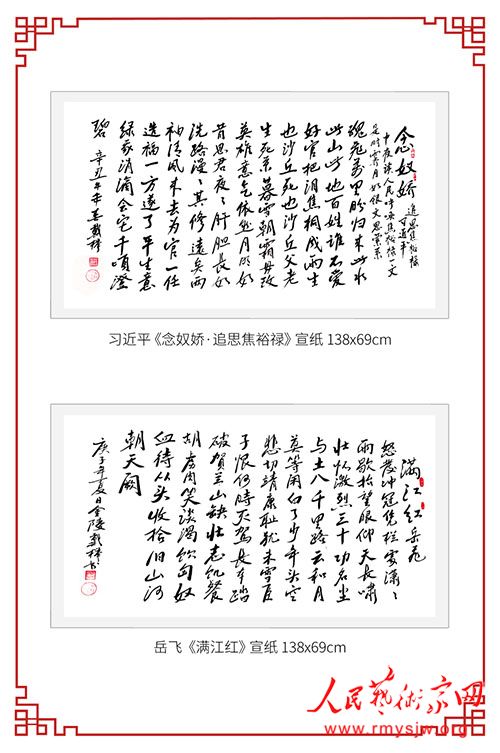 念奴娇 追思焦裕禄
习近平
中夜读人民呼唤焦裕禄一文
是时霁月如银文思萦系
魂飞万里盼归来此水
此山此地百姓谁不爱
好官把泪焦桐成雨生
也沙丘死也沙丘父老
生死系暮雪朝霜毋改
英雄意气依然月明如
昔思君夜夜肝胆长如
洗路漫漫其修远矣两
袖清风来去为官一任
造福一方遂了平生意
绿我涓滴会它千顷澄
碧 辛丑年
习近平《念奴娇·追思焦裕禄》宣纸 138x69cm
满江红 岳飞
怒发冲冠凭栏处潇潇
雨歇抬望眼仰天长啸
壮怀激烈三十功名尘
与土八千里路云和月
莫等闲白了少年头空
悲切靖康耻犹未雪臣
子恨何時灭驾长车踏
破贺兰山缺壮志饥餐
胡虏肉笑谈渴饮匈奴
血待从头收拾旧山河
朝天阙
庚子年夏日金陵戴祥书
岳飞《满江红》宣纸 138x69cm
人民藝術家网
www.rmysjw.org